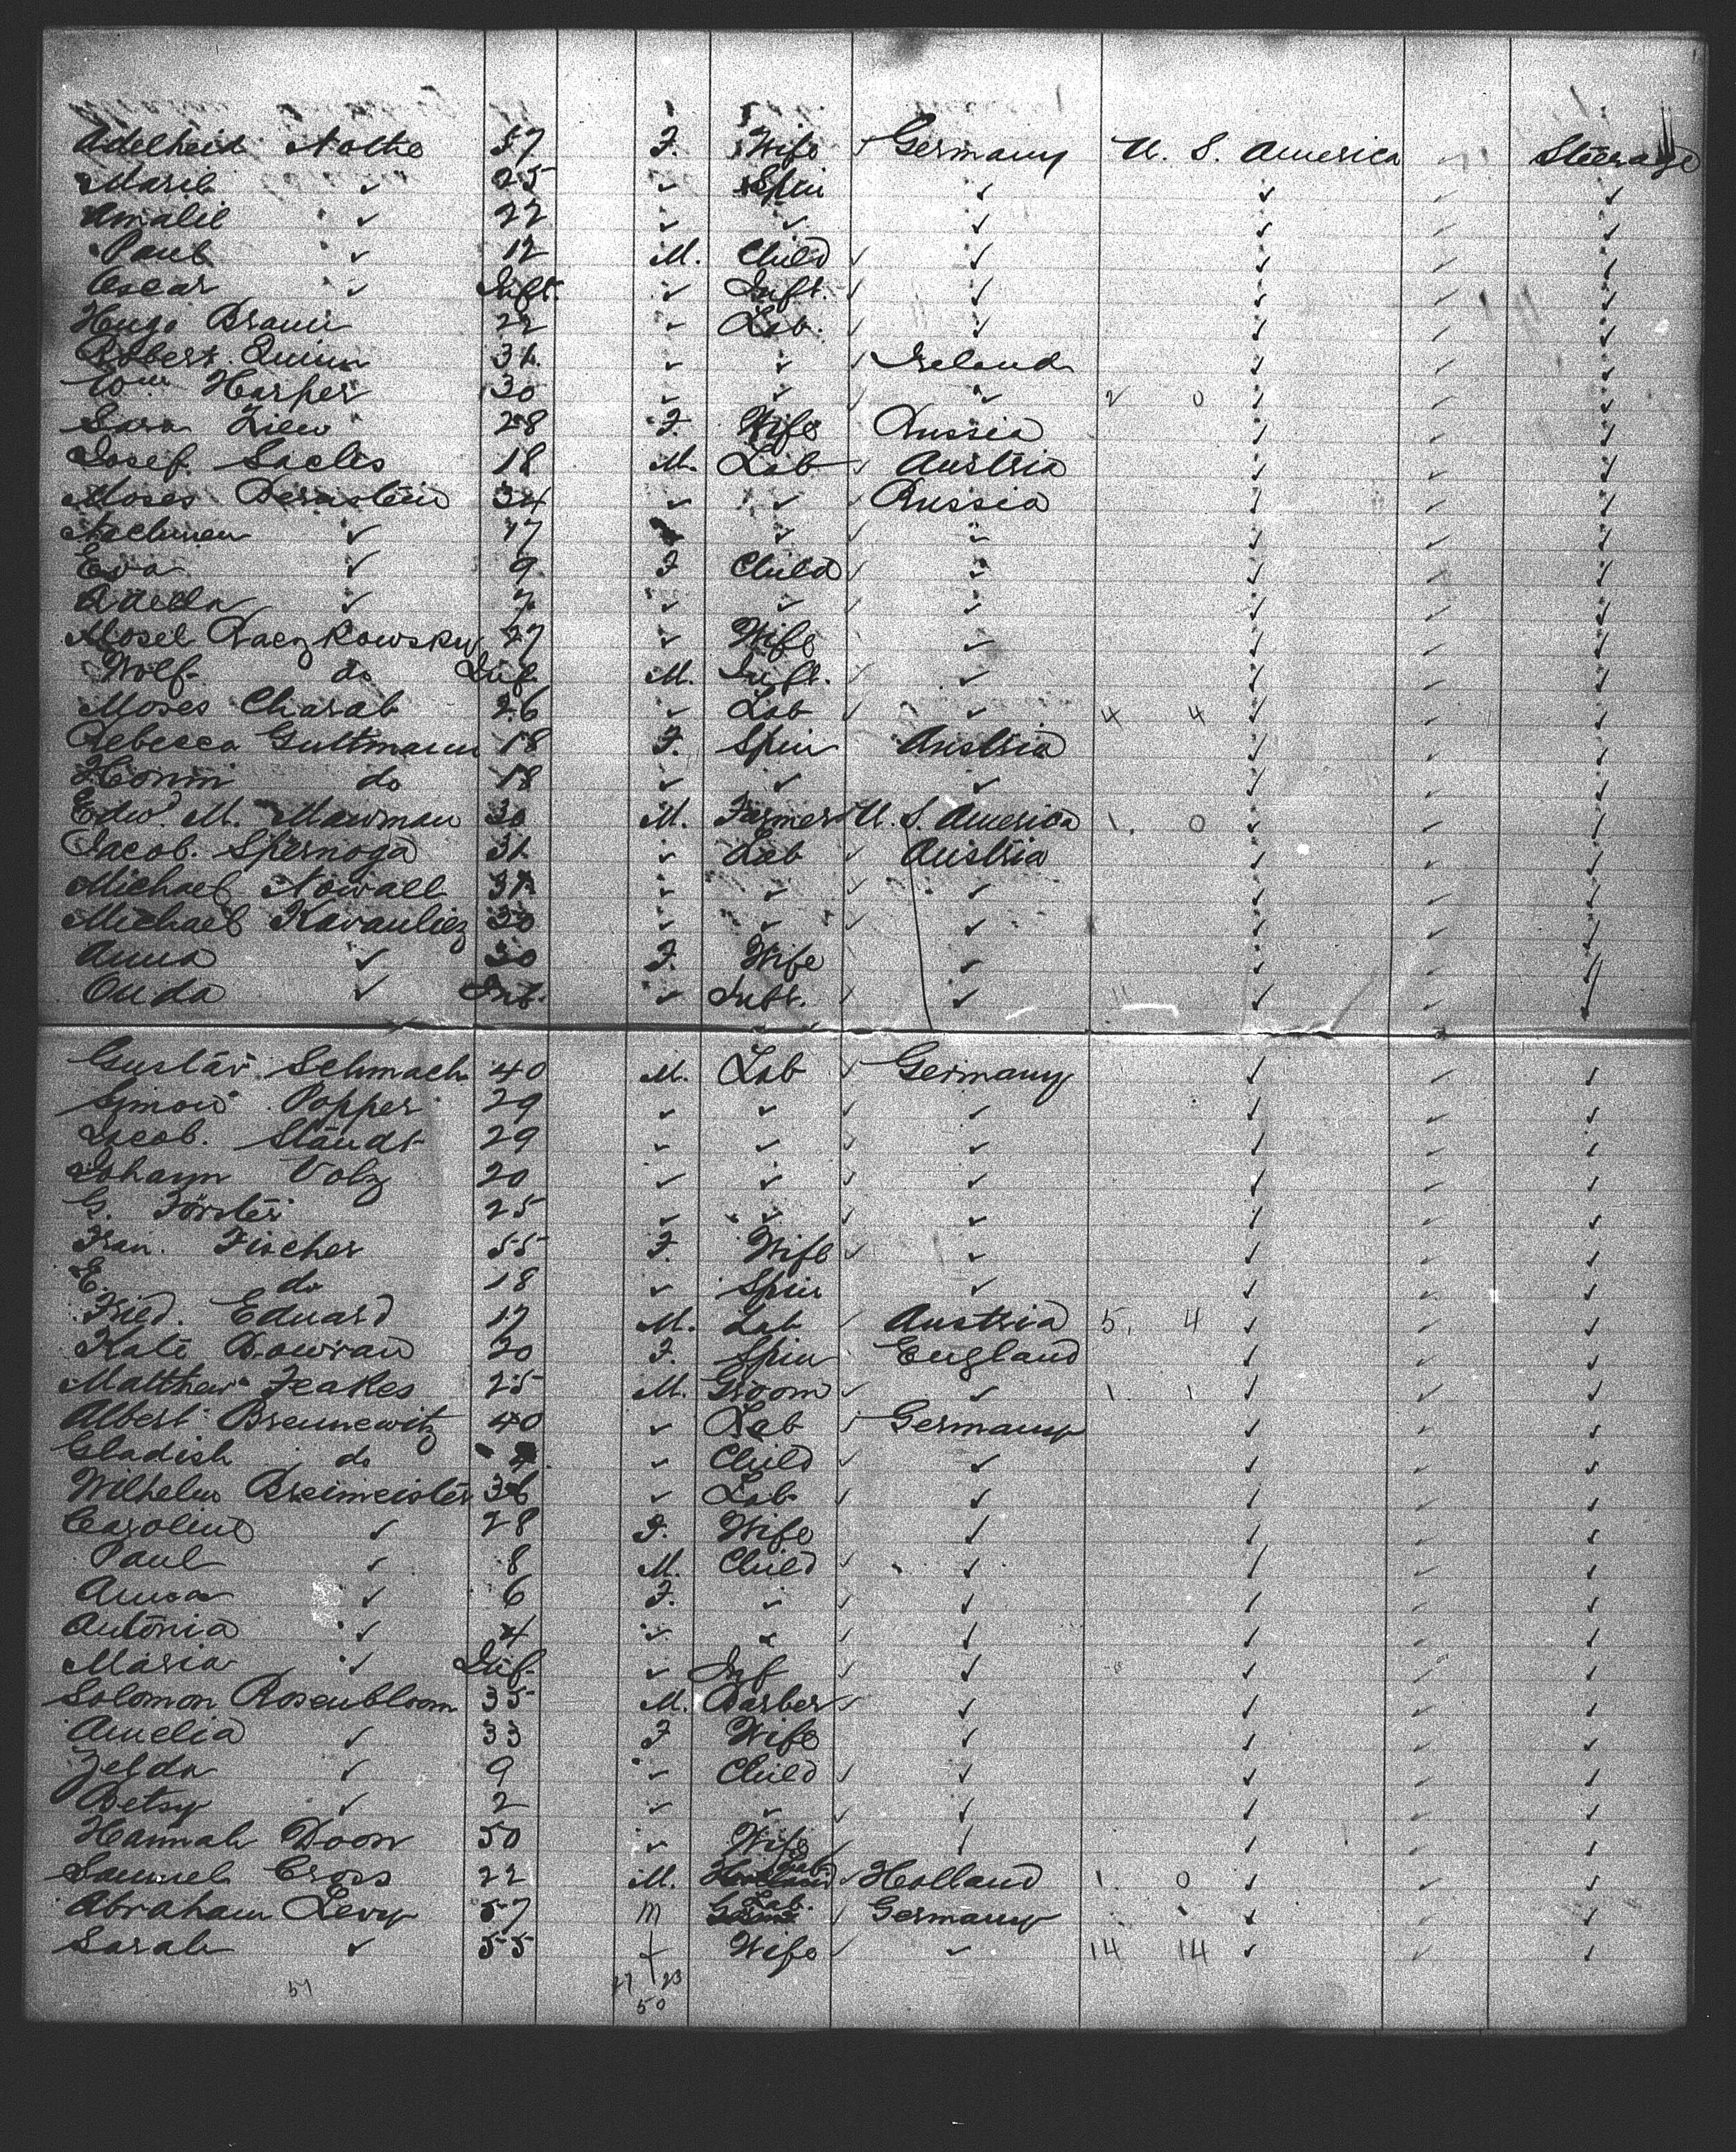 Adelheid Nolthe 57 F. Wife ✓ Germany U. S. America ✓ Steerage
Marie ✓ 25 ✓ Spin ✓ ✓ ✓ ✓
Amalie ✓ 22 ✓ ✓ ✓ ✓ ✓ ✓
Paul ✓ 12 M. Child ✓ ✓ ✓ ✓ ✓
Oscar ✓ Inft. ✓ Inft. ✓ ✓ ✓ ✓ ✓
Hugo Braun 22 ✓ Lab. ✓ ✓ ✓ ✓ ✓
Robert Quinn 31 ✓ ✓ ✓ Ireland ✓ ✓ ✓
Wm. Harper 30 ✓ ✓ ✓ ✓ 2 0 ✓ ✓ ✓
Sara Ziew 28 F. Wife Russia ✓ ✓ ✓
Josef. Sachs 18 M. Lab ✓ Austria ✓ ✓ ✓
Moses Bernstein 34 ✓ ✓ ✓ Russia ✓ ✓ ✓
✓ 17 ✓ ✓ ✓ ✓ ✓ ✓
Eva ✓ 9 F Child ✓ ✓ ✓ ✓ ✓
✓ 7 ✓ ✓ ✓ ✓ ✓ ✓ ✓
Mosel Raczkowsky 27 ✓ Wife ✓ ✓ ✓ ✓
Wolf do Inf. M. Inft. ✓ ✓ ✓ ✓ ✓
Moses Charab 26 ✓ Lab ✓ ✓ 4 4 ✓ ✓ ✓
Rebecca Guttmann 18 F. Spin Austria ✓ ✓ ✓
do 18 ✓ ✓ ✓ ✓ ✓ ✓
Edw. M. Mawman 30 M. Farmer U. S. America 1. 0 ✓ ✓ ✓
Jacob. Spernoga 31 ✓ Lab ✓ Austria ✓ ✓ ✓
Michael Nowall 31 ✓ ✓ ✓ ✓ ✓ ✓ ✓
Michael Kavauliez 30 ✓ ✓ ✓ ✓ ✓ ✓ ✓
Anna ✓ 30 F. Wife ✓ ✓ ✓ ✓
Ouda ✓ Inf. ✓ Inft. ✓ ✓ ✓ ✓ ✓
Gustav Schmach 40 M. Lab ✓ Germany ✓ ✓ ✓
Popper 29 ✓ ✓ ✓ ✓ ✓ ✓ ✓
Jacob. Staudt 29 ✓ ✓ ✓ ✓ ✓ ✓ ✓
Johann Volz 20 ✓ ✓ ✓ ✓ ✓ ✓ ✓
G. Förster 25 ✓ ✓ ✓ ✓ ✓ ✓ ✓
Fran. Fischer 55 F. Wife ✓ ✓ ✓ ✓ ✓
E. do 18 ✓ Spin ✓ ✓ ✓ ✓
Fried. Eduard 17 M. Lab ✓ Austria 5. 4 ✓ ✓ ✓
Kate Bowran 20 F. Spin England ✓ ✓ ✓
Matthew Feakes 25 M. Groom ✓ ✓ 1. 1 ✓ ✓ ✓
Albert Brennewitz 40 ✓ Lab ✓ Germany ✓ ✓ ✓
Gladish do ✓ Child ✓ ✓ ✓ ✓ ✓
Wilhelm Breimeister 36 ✓ Lab ✓ ✓ ✓ ✓ ✓
Caroline ✓ 28 F. Wife ✓ ✓ ✓ ✓
Paul ✓ 8 M. Child ✓ ✓ ✓ ✓ ✓
Anna ✓ 6 F. ✓ ✓ ✓ ✓ ✓ ✓
Antonia ✓ 4 ✓ ✓ ✓ ✓ ✓ ✓ ✓
Maria ✓ Inf. ✓ Inf ✓ ✓ ✓ ✓ ✓
Solomon Rosenbloom 35 M. Barber ✓ ✓ ✓ ✓ ✓
Amelia ✓ 33 F Wife ✓ ✓ ✓ ✓
Zelda ✓ 9 ✓ Child ✓ ✓ ✓ ✓ ✓
Betsy ✓ 2 ✓ ✓ ✓ ✓ ✓ ✓ ✓
Hannah Doon 50 ✓ Wife ✓ ✓ ✓ ✓ ✓
Samuel Cross 22 M. Lab. ✓ Holland 1. 0 ✓ ✓ ✓
Abraham Levy 57 M Lab. ✓ Germany ✓ ✓ ✓
Sarah ✓ 55 f Wife ✓ ✓ 14 14 ✓ ✓ ✓
51 27 23
50